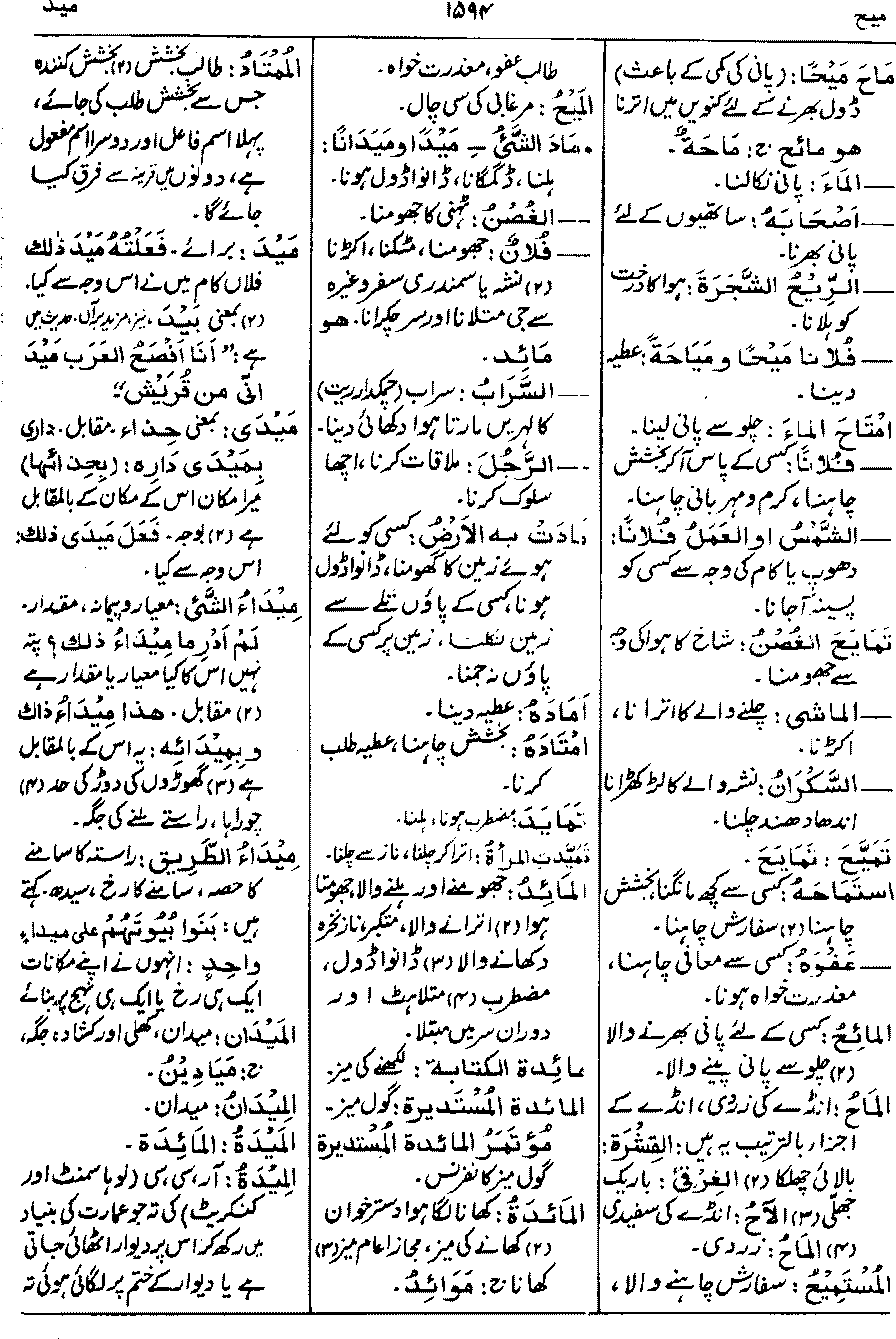 میح
۱۵۹۴
مید
مَاحَ مَیْحًا: (پانی کی کمی کے باعث)
ڈول بھرنے کے لئے کنویں میں اترنا
ھو مائح ج: مَاحَةٌ۔
— المَاءَ: پانی نکالنا۔
— اَصْحَابَهُ: ساتھیوں کے لئے
پانی بھرنا۔
— الرِّیْحُ الشَّجَرَةَ: ہوا کا درخت
کو ہلانا۔
— فُلَانًا مَیْحًا و مَیَاحَةً: عطیہ
دینا۔
امْتَاحَ المَاءَ: چلو سے پانی لینا۔
— فُلَانًا: کسی کے پاس آکر بخشش
چاہنا، کرم و مہربانی چاہنا۔
— الشَّمْسُ او العَمَلُ فُلَانًا:
دھوپ یا کام کی وجہ سے کسی کو
پسینہ آجانا۔
تَمَایَحَ الغُصْنُ: شاخ کا ہوا کی وجہ
سے جھومنا۔
— الماشی: چلنے والے کا اترانا،
اکڑنا۔
— السَّکْرَانُ: نشہ والے کا لڑکھڑانا
اندھا دھند چلنا۔
تَمَیَّحَ: تَمَایَحَ۔
اسْتَمَاحَهُ: کسی سے کچھ مانگنا، بخشش
چاہنا (۲) سفارش چاہنا۔
— عَفْوَهُ: کسی سے معافی چاہنا،
معذرت خواہ ہونا۔
المَائِحُ: کسی کے لئے پانی بھرنے والا
(۲) چلو سے پانی پینے والا۔
المَاحُ: انڈے کی زردی، انڈے کے
اجزار بالترتیب یہ ہیں: القِشْرَة:
بالائی چھلکا (۲) الغِرْقِئُ: باریک
جھلی (۳) الآحُ: انڈے کی سفیدی
(۴) المَاحُ: زردی۔
المُسْتَمِیْحُ: سفارش چاہنے والا،
طالب عفو، معذرت خواہ۔
المَیْحُ: مرغابی کی سی چال۔
• مَادَ الشَّئُ — مَیْدًا و مَیَدَانًا:
ہلنا، ڈگمگانا، ڈانواڈول ہونا۔
— الغُصْنُ: ٹہنی کا جھومنا۔
— فُلَانٌ: جھومنا، مٹکنا، اکڑنا
(۲) نشہ یا سمندری سفر وغیرہ
سے جی متلانا اور سر چکرانا۔ ھو
مَائِد۔
— السَّرَابُ: سراب (چمکدار ریت)
کا لہریں مارتا ہوا دکھائی دینا۔
— الرَّجُلَ: ملاقات کرنا، اچھا
سلوک کرنا۔
مَادَتْ بِهِ الاَرْضُ: کسی کو لئے
ہوئے زمین کا گھومنا، ڈانواڈول
ہونا، کسی کے پاؤں تلے سے
زمین نکلنا، زمین پر کسی کے
پاؤں نہ جمنا۔
اَمَادَهُ: عطیہ دینا۔
امْتَادَهُ: بخشش چاہنا، عطیہ طلب
کرنا۔
تَمَایَدَ: مضطرب ہونا، ہلنا۔
تَمَیَّدَتِ المَرأةُ: اترا کر چلنا، ناز سے چلنا۔
المَائِدُ: جھومنے اور ہلنے والا جھومتا
ہوا (۲) اترانے والا، متکبر، ناز نخرہ
دکھانے والا (۳) ڈانواڈول،
مضطرب (۴) متلاہٹ اور
دوران سر میں مبتلا۔
مائِدة الکتابة: لکھنے کی میز۔
المائدة المُسْتَدِیرة: گول میز۔
مُؤْتَمَرُ المائدة المُسْتَدِیْرة
گول میز کانفرنس۔
المَائِدَةُ: کھانا لگا ہوا دسترخوان
(۲) کھانے کی میز، مجازا عام میز (۳)
کھانا ج: مَوَائِدُ۔
المُمْتَادُ: طالب بخشش (۲) بخشش کنندہ
جس سے بخشش طلب کی جائے،
پہلا اسم فاعل اور دوسرا اسم مفعول
ہے، دونوں میں قرینہ سے فرق کیا
جائے گا۔
مَیْدَ: برائے۔ فَعَلْتُهُ مَیْدَ ذٰلِكَ
فلاں کام میں نے اس وجہ سے کیا۔
(۲) بمعنی بَیْدَ، نیز، مزید برآں، حدیث میں
ہے: "اَنَا اَفْصَحُ العَرَبِ مَیْدَ
اَنّی مِنْ قُرَیْش"
مَیْدَی: بمعنی حِذاء۔ مقابل۔ داری
بِمَیْدَی دَارِه: (بِحِذائِها)
میرا مکان اس کے مکان کے بالمقابل
ہے (۲) بوجہ۔ فَعَلَ مَیْدَی ذٰلِك:
اس وجہ سے کیا۔
مِیْدَاءُ الشَّئِ: معیار و پیمانہ، مقدار۔
لَمْ اَدْرِ ما مِیْدَاءُ ذٰلك؟ پتہ
نہیں اس کا کیا معیار یا مقدار ہے
(۲) مقابل۔ ھٰذا مِیْدَاءُ ذاك
و بِمِیْدَائِه: یہ اس کے بالمقابل
ہے (۳) گھوڑ دوڑ کی دوڑ کی حد (۴)
چوراہا، راستے ملنے کی جگہ۔
مِیْدَاءُ الطَّرِیق: راستہ کا سامنے
کا حصہ، سامنے کا رخ، سیدھ۔ کہتے
ہیں: بَنَوا بُیُوتَهُمْ علی میداءٍ
واحِدٍ: انہوں نے اپنے مکانات
ایک ہی رخ یا ایک ہی نہج پر بنائے
المَیْدَانُ: میدان، کھلی اور کشادہ جگہ،
ج: مَیَادِیْنُ۔
المِیْدَانُ: میدان۔
المَیْدَةُ: المَائِدَة۔
المِیْدَةُ: آر، سی، سی (لوہا سمنٹ اور
کنکریٹ) کی تہ جو عمارت کی بنیاد
میں رکھ کر اس پر دیوار اٹھائی جاتی
ہے یا دیوار کے ختم پر لگائی ہوئی تہ